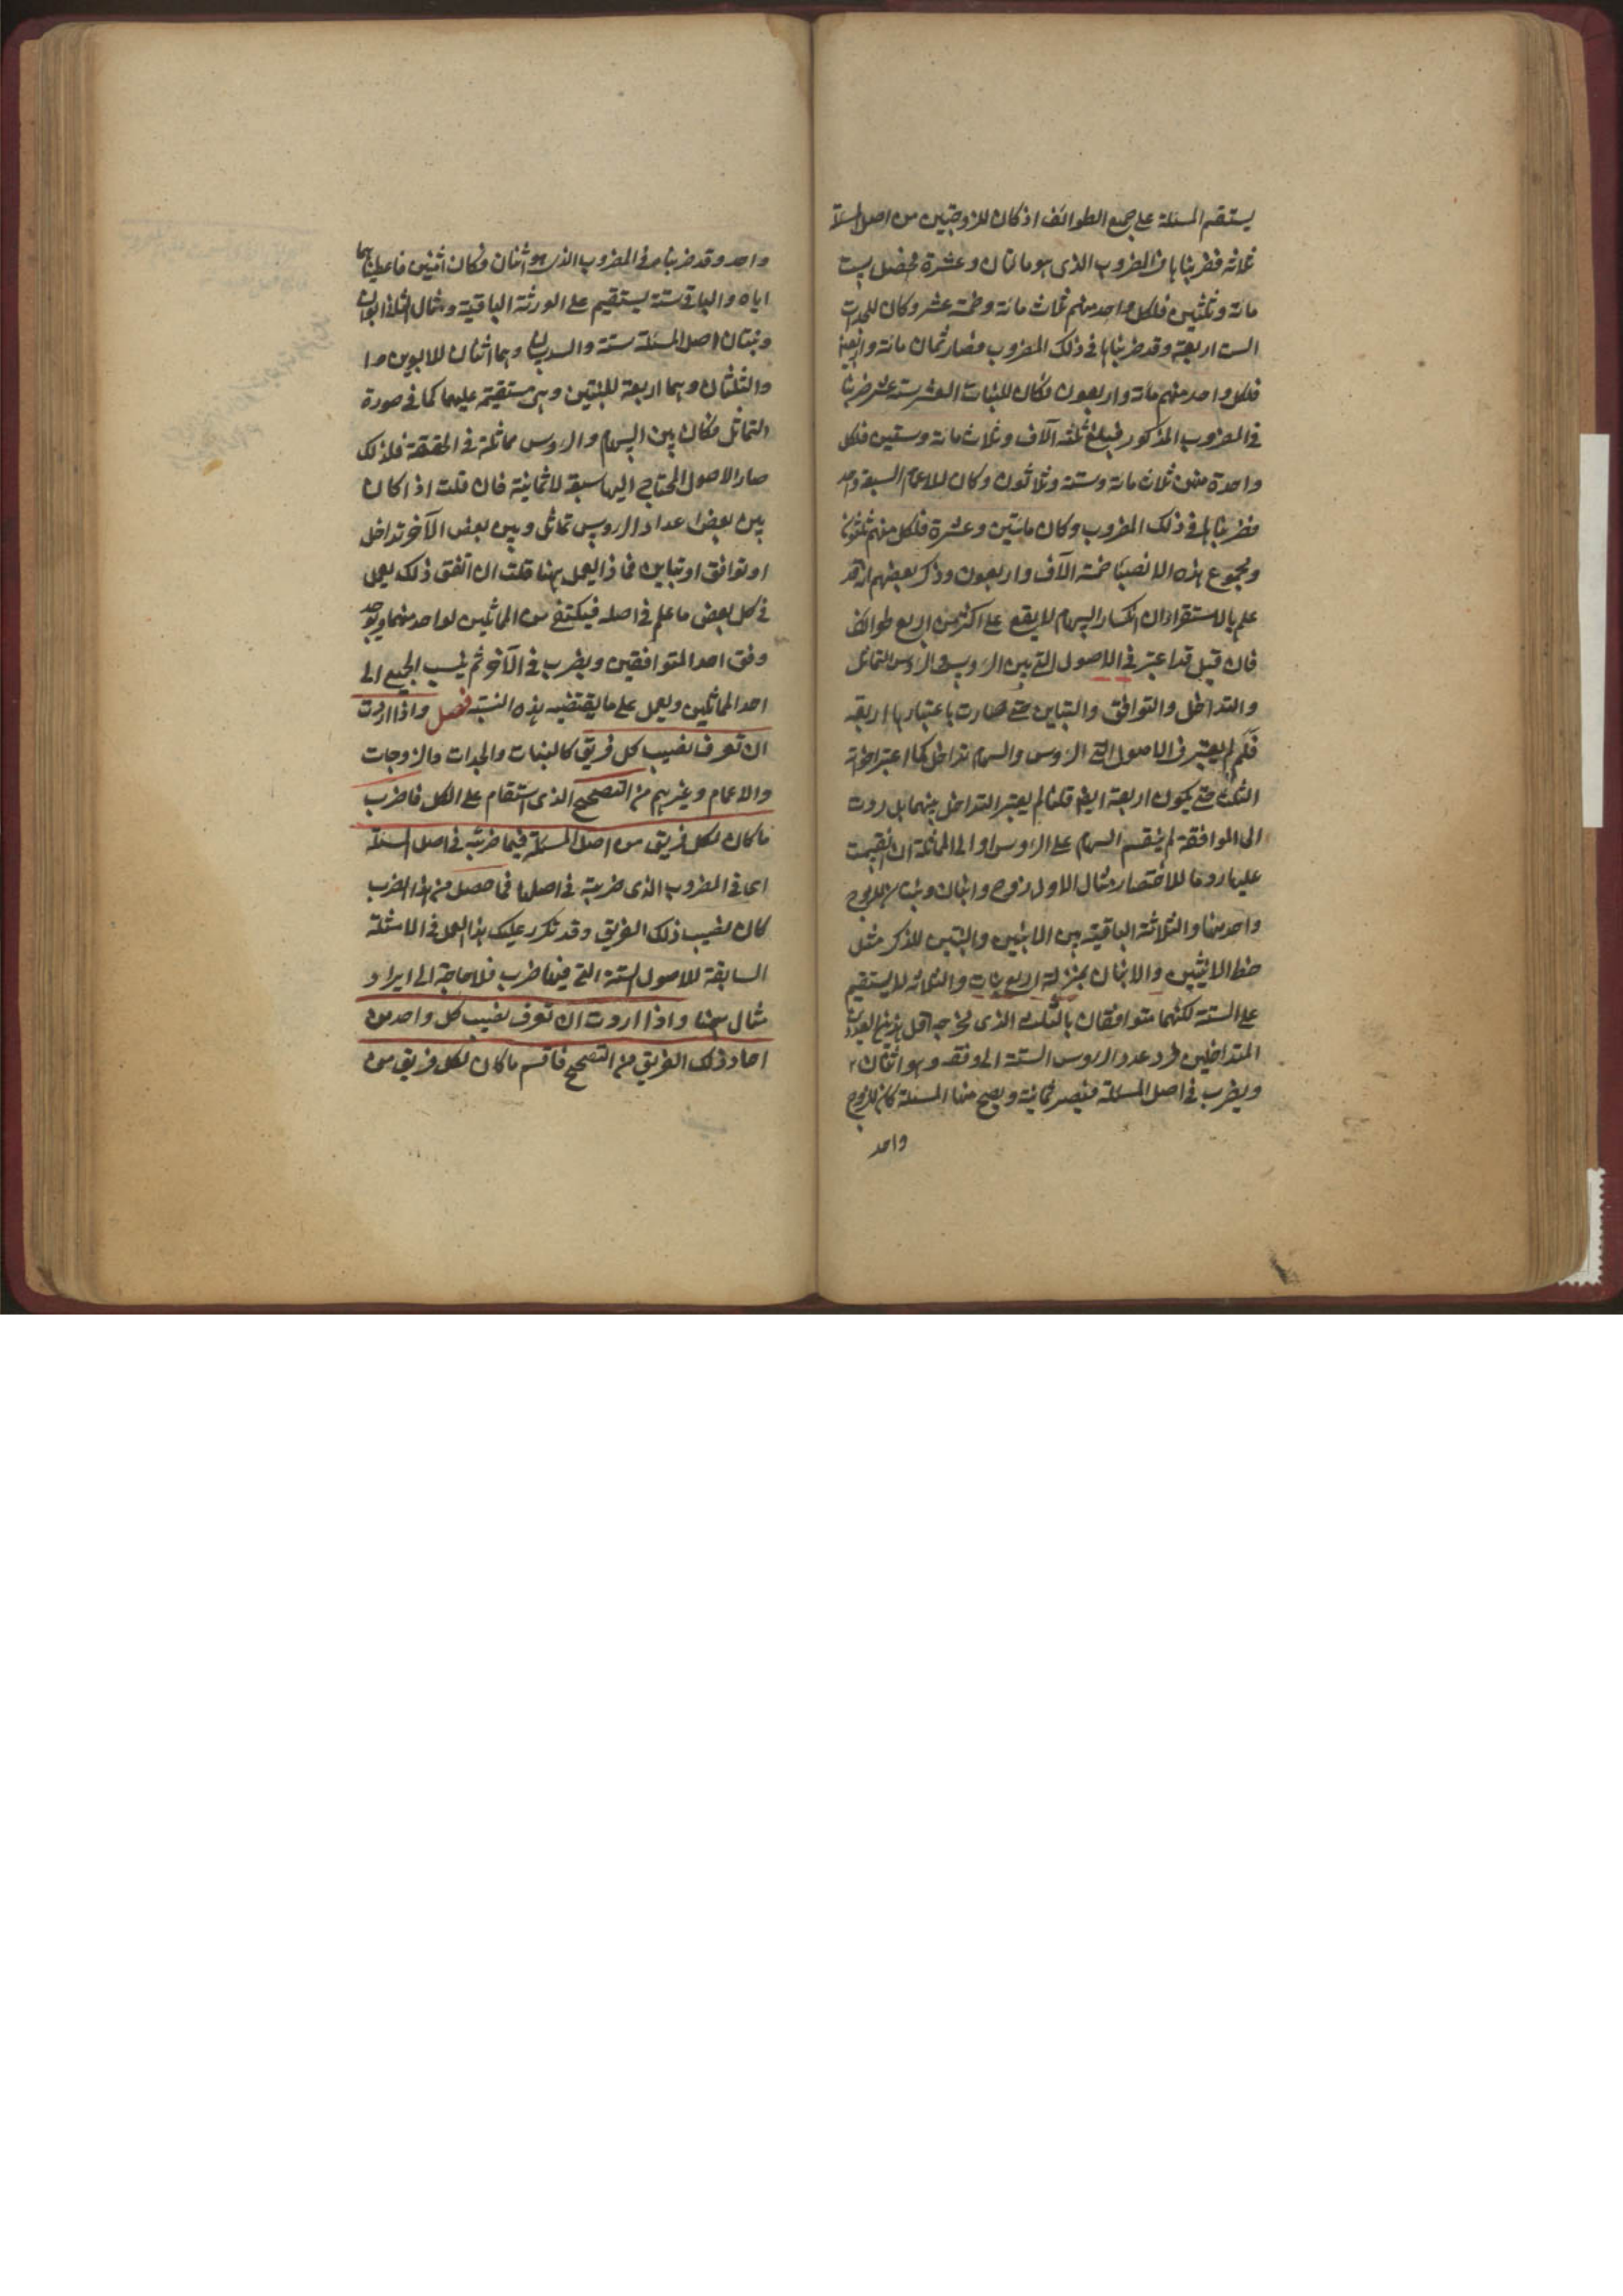 يستقيم المسئلة على جميع الطوائف اذ كان للزوجتين من اصل المسئلة
ثلاثة فضربناها في المضروب الذي هو مائتان وعشرة فحصل ست
مائة وثلثين فلكل واحد منهم ثلاث مائة وخمسة عشر وكان للجدات
الست اربعة وقد ضربناها في ذلك المضروب فصار ثمان مائة واربعين
فلكل واحد منهم مائة واربعون وكان للبنات العشر ستة عشر ضربنا
في المضروب المذكور فبلغ ثلثة آلاف وثلاث مائة وستين فلكل
واحدة منهن ثلاث مائة وستة وثلاثون وكان للاعمام السبعة واحد
فضربناه في ذلك المضروب وكان مائتين وعشرة فلكل منهم ثلثون
ومجموع هذه الانصباء خمسة آلاف واربعون وذكر بعضهم انه قد
علم بالاستقراء ان انكسار السهام لا يقع على اكثر من اربع طوائف
فان قيل قد اعتبر في الاصول التي بين الروس والروس التماثل
والتداخل والتوافق والتباين حتى صارت باعتبارها اربعة
فلم لم يعتبر في الاصول التي الروس والسهام تداخل كما اعتبر اخواته
الثلث حتى يكون اربعة ايضا قلنا لم يعتبر التداخل بينهما بل ردت
الى الموافقة لم ينقسم السهام على الروس او الى المماثلة ان انقسمت
عليها روما للاختصار مثال الاول زوج وابنان وبنتان للزوج
واحد منها والثلاثة الباقية بين الابنين والبنتين للذكر مثل
حظ الانثيين والابنان بمنزلة اربع بنات والثلاثة لا يستقيم
على الستة لكنهما متوافقان بالثلث الذي مخرجه اقل هذين العددين
المتداخلين فرد عدد الروس الستة الى وفقه وهو اثنان ٢
ويضرب في اصل المسئلة فتصير ثمانية ويصح منها المسئلة كان للزوج
واحد
واحد وقد ضربناه في المضروب الذي هو اثنان فكان اثنين فاعطيناهما
اياه والباقي ستة يستقيم على الورثة الباقية ومثال الثاني ابوان
وبنتان اصل المسئلة ستة والسدسان وهما اثنان للابوين
والثلثان وهما اربعة للبنتين وهي مستقيمة عليهما كما في صورة
التماثل فكان بين السهام والروس مماثلة في الحقيقة فلذلك
صار الاصول المحتاج اليها سبعة لا ثمانية فان قلت اذا كان
بين بعض اعداد الروس تماثل وبين بعض الآخر تداخل
او توافق او تباين فماذا يعمل ههنا قلت ان اتفق ذلك يعمل
في كل بعض ما علم في اصله فيكتفى من المماثلين لواحد منهما ويوخذ
وفق احد المتوافقين ويضرب في الآخر ثم ينسب الجميع الى
احد المماثلين ويعمل على ما يقتضيه هذه النسبة فصل واذا اردت
ان تعرف نصيب كل فريق كالبنات والجدات والزوجات
والاعمام وغيرهم من التصحيح الذي استقام على الكل فاضرب
ما كان لكل فريق من اصل المسئلة فيما ضربته في اصل المسئلة
اي في المضروب الذي ضربته في اصلها فما حصل من هذا الضرب
كان نصيب ذلك الفريق وقد تكرر عليك هذا العمل في الامثلة
السابقة للاصول الستة التي فيها ضرب فلا حاجة الى ايراد
مثال ههنا واذا اردت ان تعرف نصيب كل واحد من
احاد ذلك الفريق من التصحيح فاقسم ما كان لكل فريق من